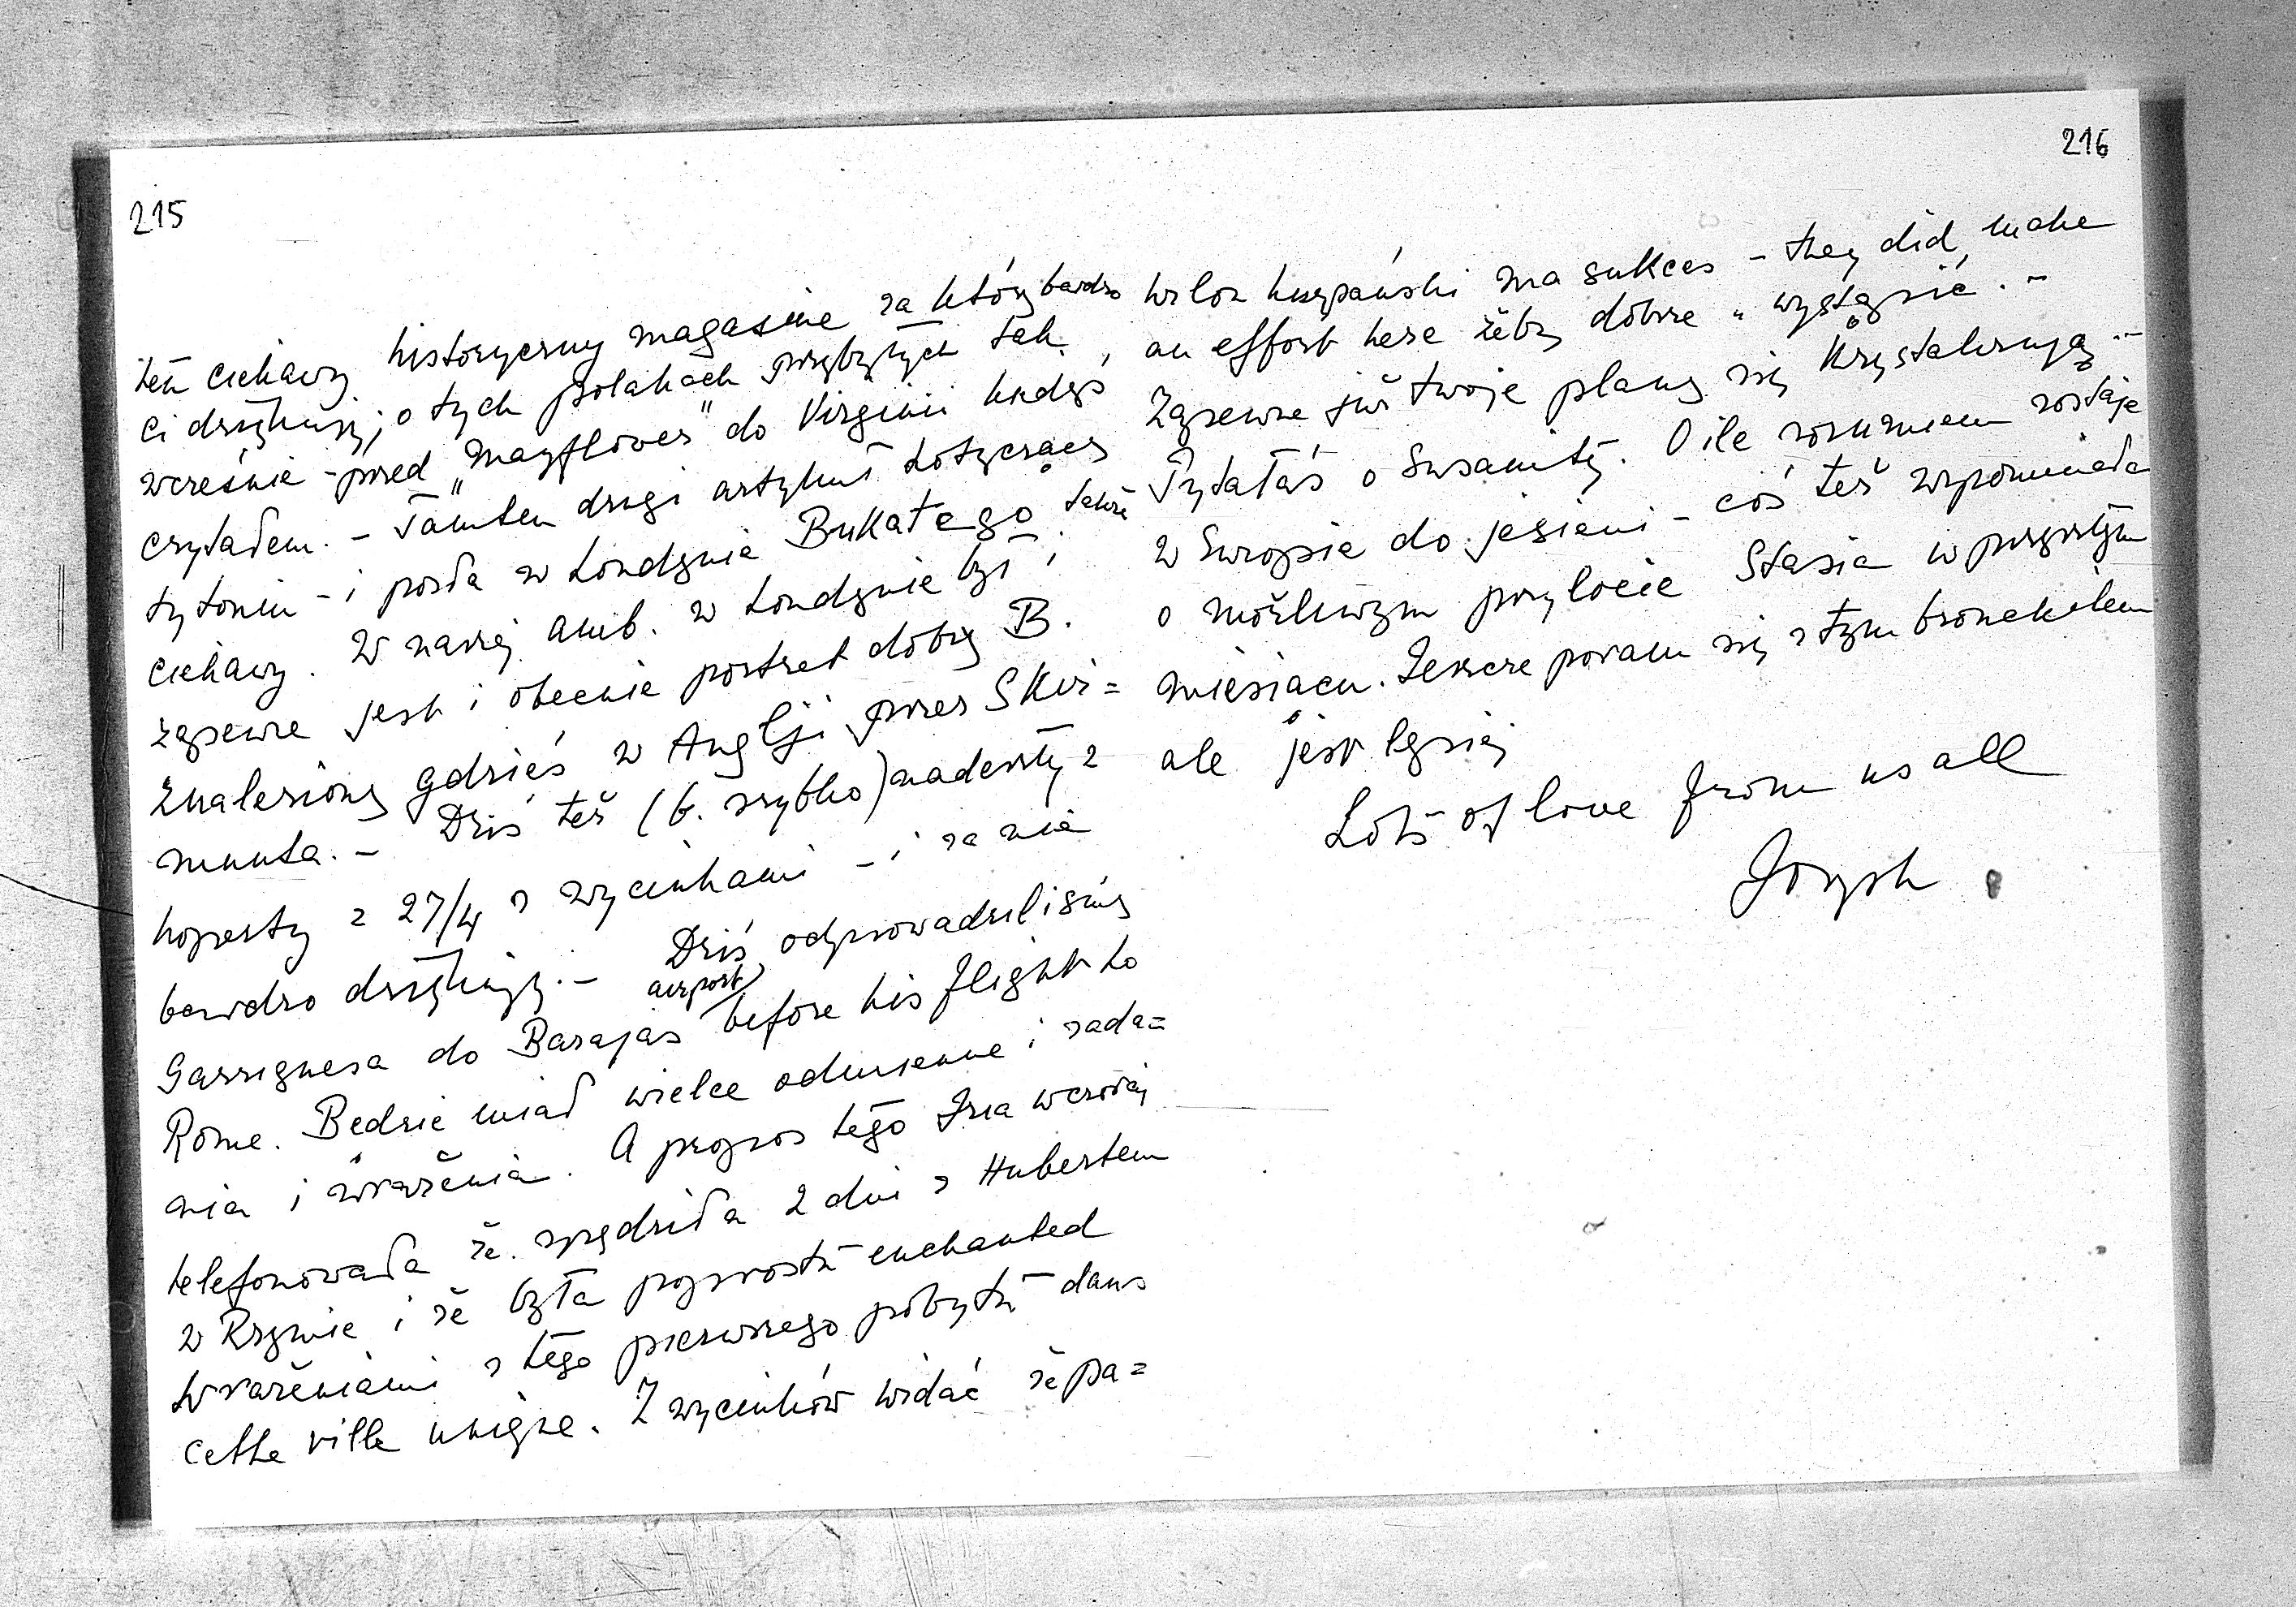 215
ten ciekawy historyczny magazine za który bardzo
ci dziękuję; o tych polakach przybyłych tak
wcześnie - przed "Mayflower" do Virginii kiedyś
czytałem. - Tamten drugi artykuł dotyczący
tytoniu - i posła w Londynie Bukatego także
ciekawy. W naszej amb. w Londynie był i
zapewne jest i obecnie portret dobry B.
znaleziony gdzieś w Anglji przez Skir=
munta. - Dziś też (b. szybko) nadeszły 2
koperty z 27/4 z wycinkami - i za nie
bardzo dziękuję. - Dziś odprowadziliśmy
Garriguesa do Barajas airport before his flight to
Rome. Będzie miał wielce odmienne i zada=
nia i wrażenia. A propos tego Iza wczoraj
telefonowała że spędziła 2 dni z Hubertem
w Rzymie i że była poprostu enchanted
wrażeniami z tego pierwszego pobytu dans
cette ville unique. Z wycinków widać że pa=
216
wilon hiszpański ma sukces - they did make
an effort here żeby dobrze "wystąpić". -
Zapewne już twoje plany się krystalizują -
Pytałaś o Susanitę. O ile rozumiem zostaje
w Europie do jesieni - coś też wspominała
o możliwym przylocie Stasia w przyszłym
miesiącu. Jeszcze poram się z tym bronchitem
ale jest lepiej
Lots of love from us all
Józych